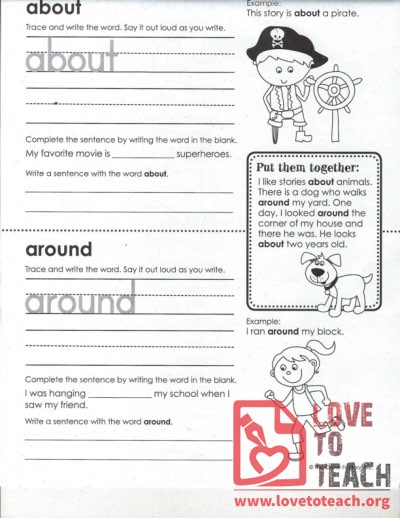 about
Trace and write the word. Say it out loud as you write.
about
Complete the sentence by writing the word in the blank.
My favorite movie is ____________ superheroes.
Write a sentence with the word about.
Example:
This story is about a pirate.
Put them together:
I like stories about animals.
There is a dog who walks
around my yard. One
day, I looked around the
corner of my house and
there he was. He looks
about two years old.
around
Trace and write the word. Say it out loud as you write.
around
Complete the sentence by writing the word in the blank.
I was hanging ____________ my school when I
saw my friend.
Write a sentence with the word around.
Example:
I ran around my block.
LOVE
TO
TEACH
www.lovetoteach.org